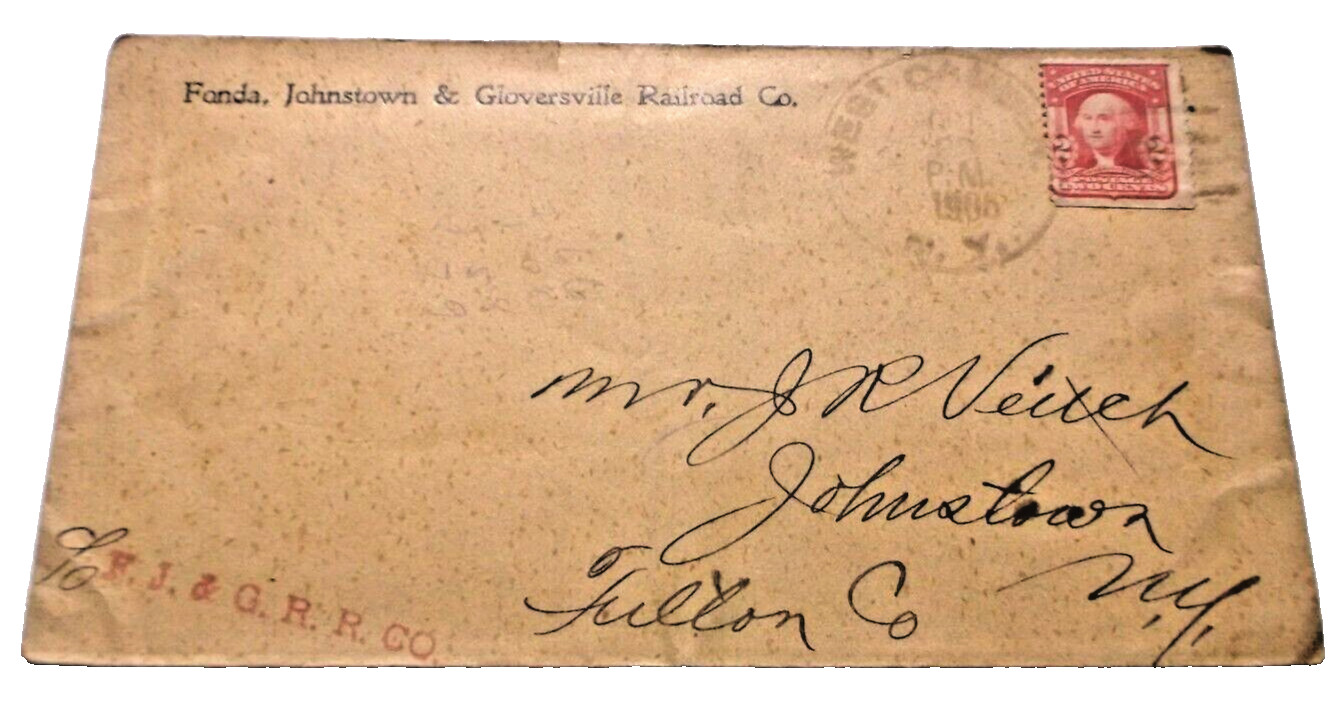 Fonda, Johnstown & Gloversville Railroad Co.
WEST
P.M.
N.Y.
UNITED STATES
OF AMERICA
2 2
POSTAGE
TWO CENTS
Mr. J R Veitch
Johnstown
Fulton Co N.Y.
To F. J. & G. R. R. CO